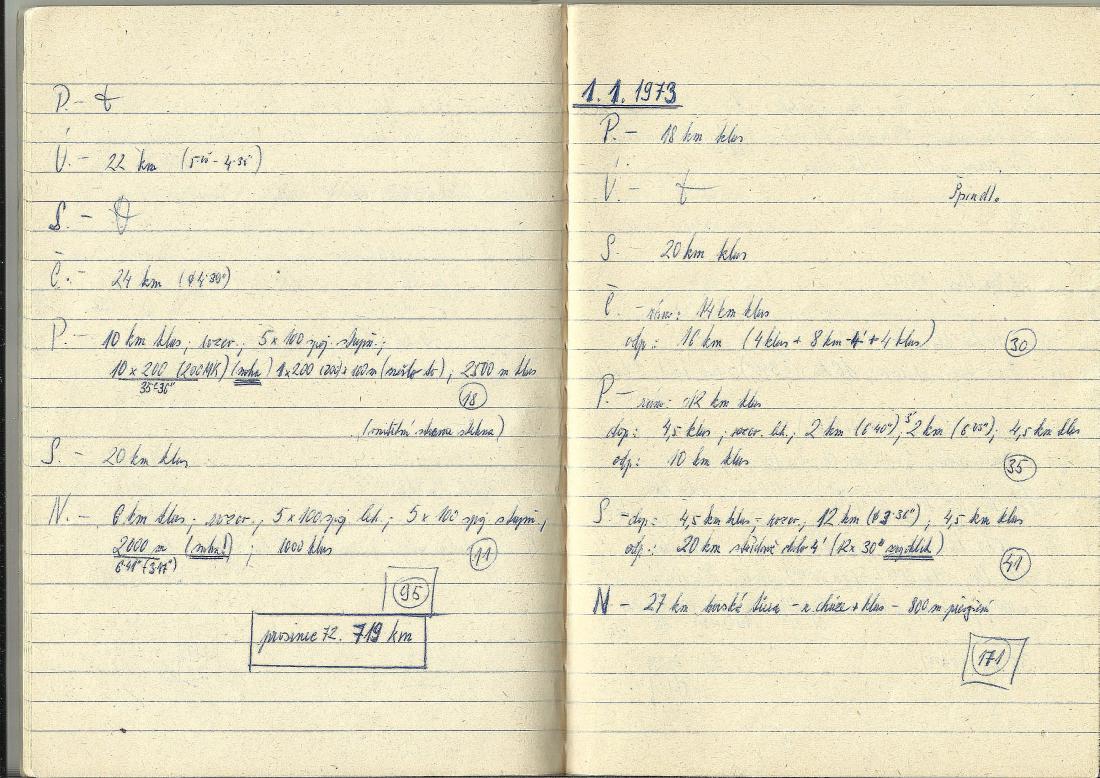 P. -
Ú. - 22 km (5 - 4.35)
S. -
Č. - 24 km (ϕ 4'30")
P. - 10 km klus, rozcv., 5 x 100 spoj. stupň.;
10 x 200 (200 MK) 2500 m klus
35-36"
18
S. - 20 km klus
N. - 6 km klus, rozcv., 5 x 100 spoj. leh., 5 x 100 spoj. stupň.,
2000 m; 1000 klus
11
95
prosinec 72. 719 km
1.1.1973
P. - 18 km klus
Ú. - Špindl.
S. 20 km klus
Č. - ráno: 14 km klus
odp.: 16 km (4 klus + 8 km 4' + 4 klus)
30
P. - ráno: 12 km klus
dop: 4,5 klus, rozcv. leh., 2 km (6'40"), 2 km; 4,5 km klus
odp: 10 km klus
35
S. - dop: 4,5 km klus, rozcv., 12 km (ϕ 3'36"), 4,5 km klus
odp.: 20 km střídavě okolo 4' (12 x 30"
41
N - 27 km horská túra - chůze + klus - 800 m
171